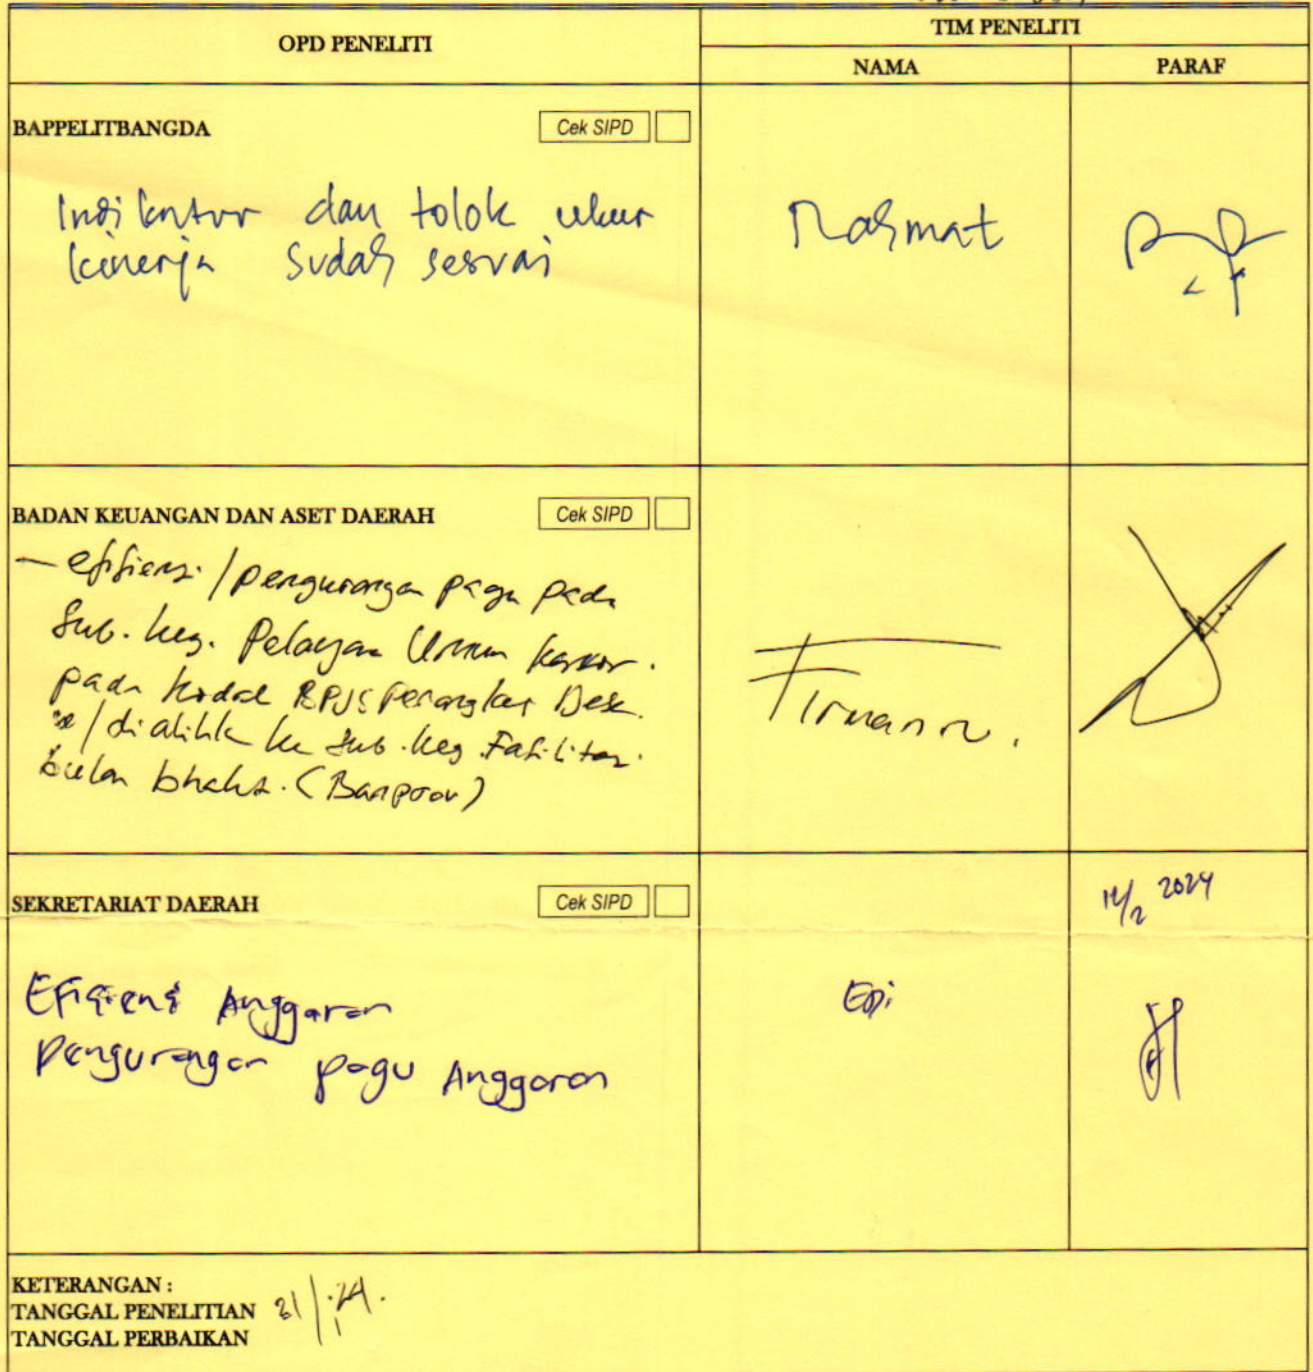 OPD PENELITI
TIM PENELITI
NAMA
PARAF
BAPPELITBANGDA
Cek SIPD
Indikator dan tolok ukur
kinerja sudah sesuai
Rahmat
BADAN KEUANGAN DAN ASET DAERAH
Cek SIPD
- efisiensi / pengurangan pagu pada
Sub. keg. Pelayan Umum Kantor.
pada BPJS Perangkat Desa.
/ dialihk ke Sub. keg. Fasilitas.
bulan bhakt. (Banprov)
Firman
SEKRETARIAT DAERAH
Cek SIPD
14/2 2024
Efisiensi Anggaran
pengurangan pagu Anggaran
Epi
KETERANGAN :
TANGGAL PENELITIAN 31/1.24.
TANGGAL PERBAIKAN